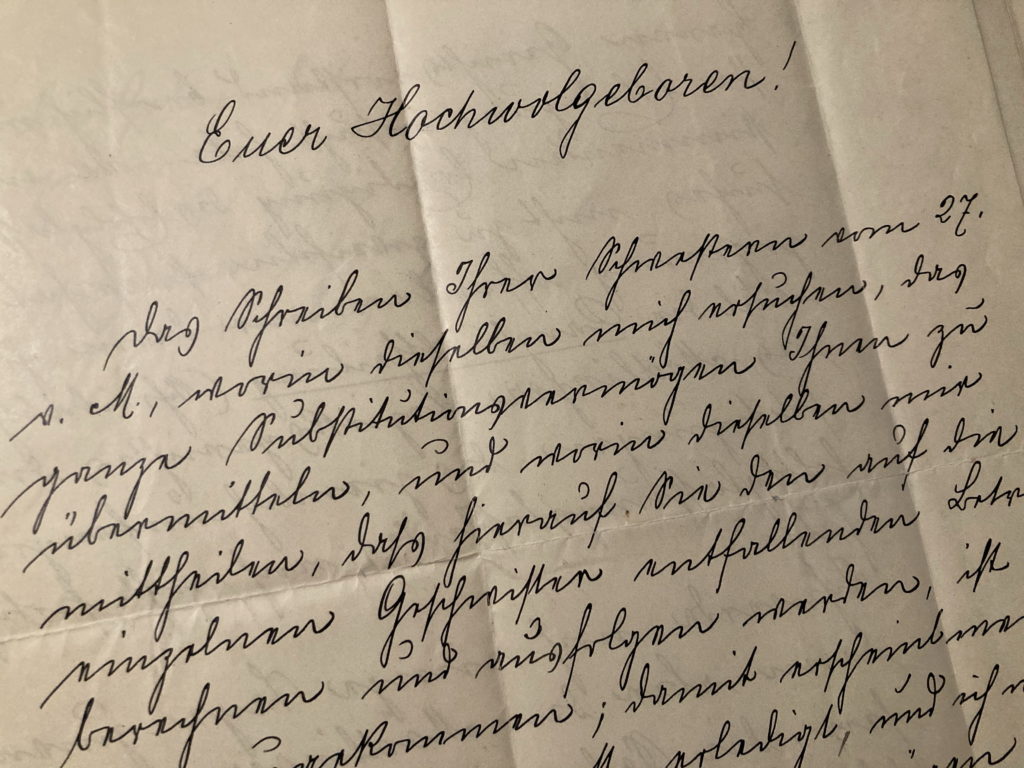 Euer Hochwolgeboren!
Das Schreiben Ihrer Schwestern vom 27.
v. M., worin dieselben mich ersuchen, das
ganze Substitutionsvermögen Ihnen zu
übermitteln, und worin dieselben mir
mittheilen, dass hierauf Sie den auf die
einzelnen Geschwister entfallenden Betr
berechnen und ausfolgen werden, ist
gekommen; damit erscheint me
erledigt, und ich